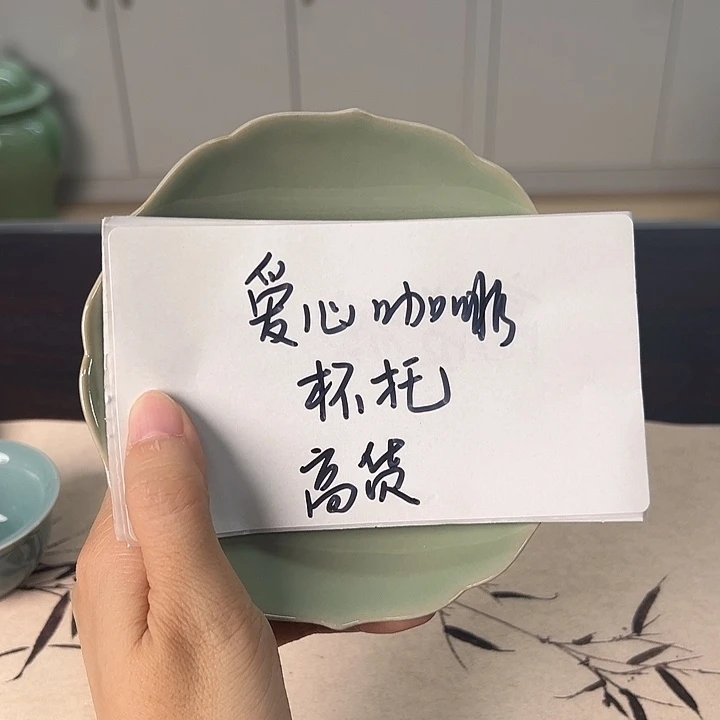 爱心咖啡
杯托
高货